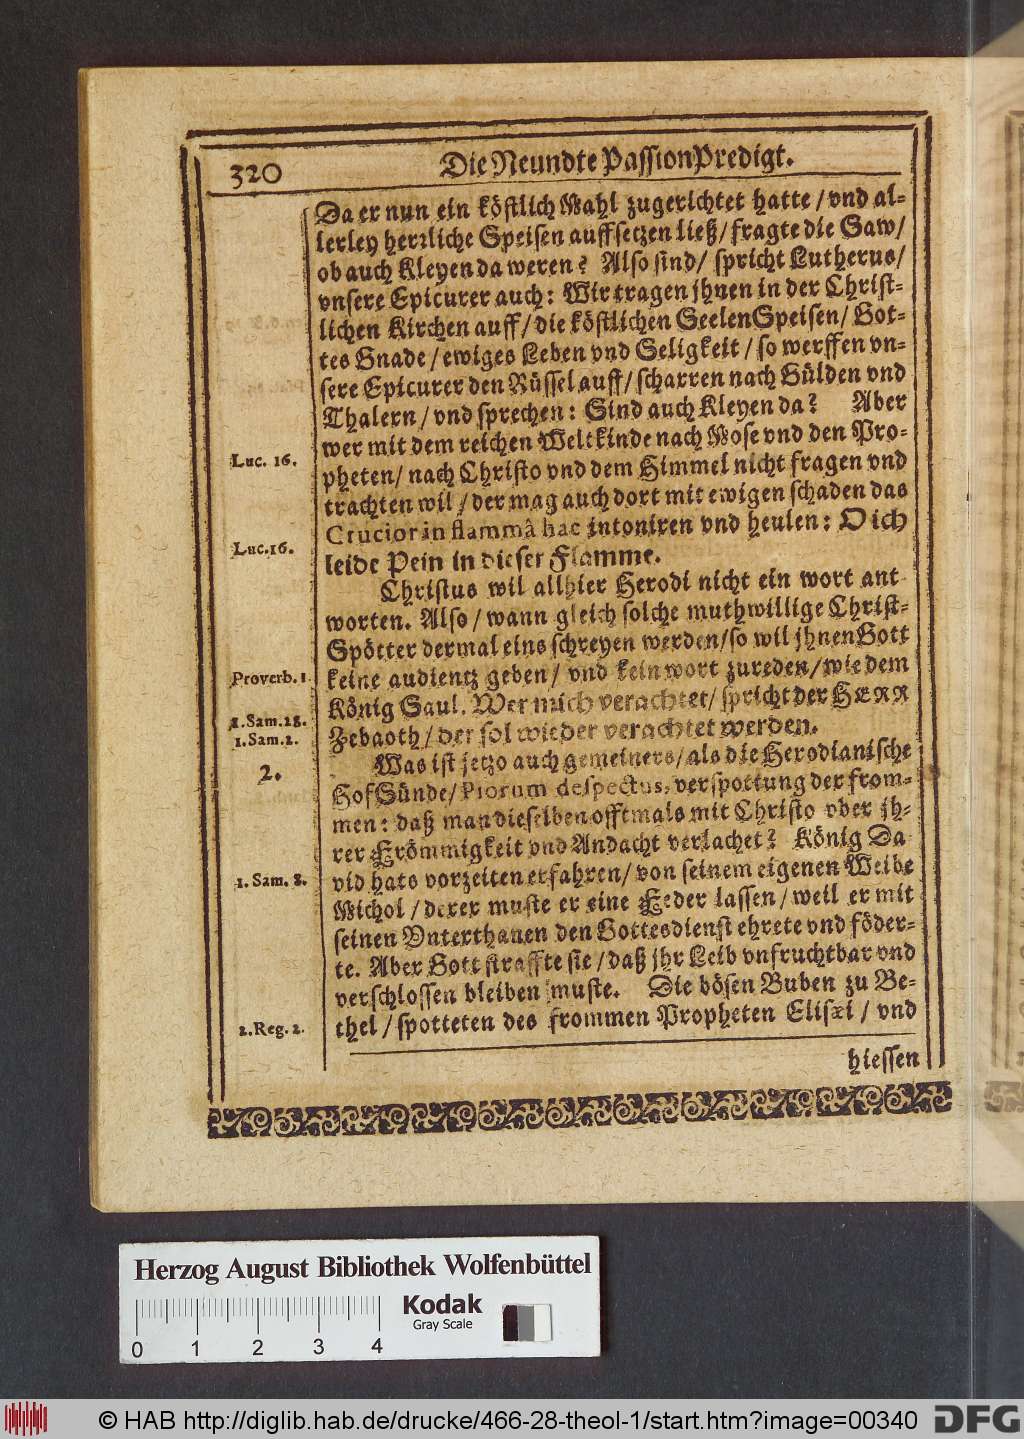 320 Die Neundte PassionPredigt.
Da er nun ein köstlich Mahl zugerichtet hatte / vnd al-
lerley herꝛliche Speisen auffsetzen ließ / fragte die Saw /
ob auch Kleyen da weren? Also sind / spricht Lutherus /
vnsere Epicurer auch: Wir tragen jhnen in der Christ-
lichen Kirchen auff / die köstlichen SeelenSpeisen / Got-
tes Gnade / ewiges Leben vnd Seligkeit / so werffen vn-
sere Epicurer den Rüssel auff / scharren nach Gülden vnd
Thalern / vnd sprechen: Sind auch Kleyen da? Aber
wer mit dem reichen Weltkinde nach Mose vnd den Pro-
Luc. 16.
pheten / nach Christo vnd dem Himmel nicht fragen vnd
trachten wil / der mag auch dort mit ewigen schaden das
Crucior in flammâ hac intoniren vnd heulen: O ich
Luc.16.
leide Pein in dieser Flamme.
Christus wil allhier Herodi nicht ein wort ant
worten. Also / wann gleich solche muthwillige Christ-
Spötter dermal eins schreyen werden / so wil jhnen Gott
keine audientz geben / vnd kein wort zureden / wie dem
Proverb. 1
König Saul. Wer mich verachtet / spricht der HERR
1.Sam.28.
Zebaoth / der sol wieder verachtet werden.
1.Sam.2.
Was ist jetzo auch gemeiners / als die Herodianische
2.
HofSünde / Piorum despectus, verspottung der from-
men: daß man dieselben offtmals mit Christo vber jh-
rer Frömmigkeit vnd Andacht verlachet? König Da
vid hats vorzeiten erfahren / von seinem eigenen Weibe
1. Sam. 8.
Michol / derer muste er eine Feder lassen / weil er mit
seinen Vnterthanen den Gottesdienst ehrete vnd föder-
te. Aber Gott straffte sie / daß jhr Leib vnfruchtbar vnd
verschlossen bleiben muste. Die bösen Buben zu Be-
thel / spotteten des frommen Propheten Elisæi / vnd
2.Reg.2.
hiessen
Herzog August Bibliothek Wolfenbüttel
Kodak
Gray Scale
0 1 2 3 4
© HAB http://diglib.hab.de/drucke/466-28-theol-1/start.htm?image=00340
DFG